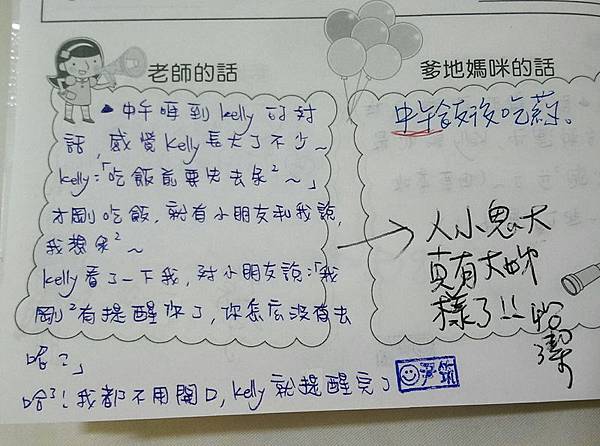 老師的話
▲中午聽到kelly的對
話,感覺Kelly長大了不少~
kelly:「吃飯前要先去尿²~」
才剛吃飯,就有小朋友和我說,
我想尿²~
kelly看了一下我,對小朋友說:「我
剛²有提醒你了,你怎麼沒有去
呢?」
哈³!我都不用開口,kelly就提醒完了
爹地媽咪的話
中午飯後吃葯。
人小鬼大
真有大姊
樣了!!哈